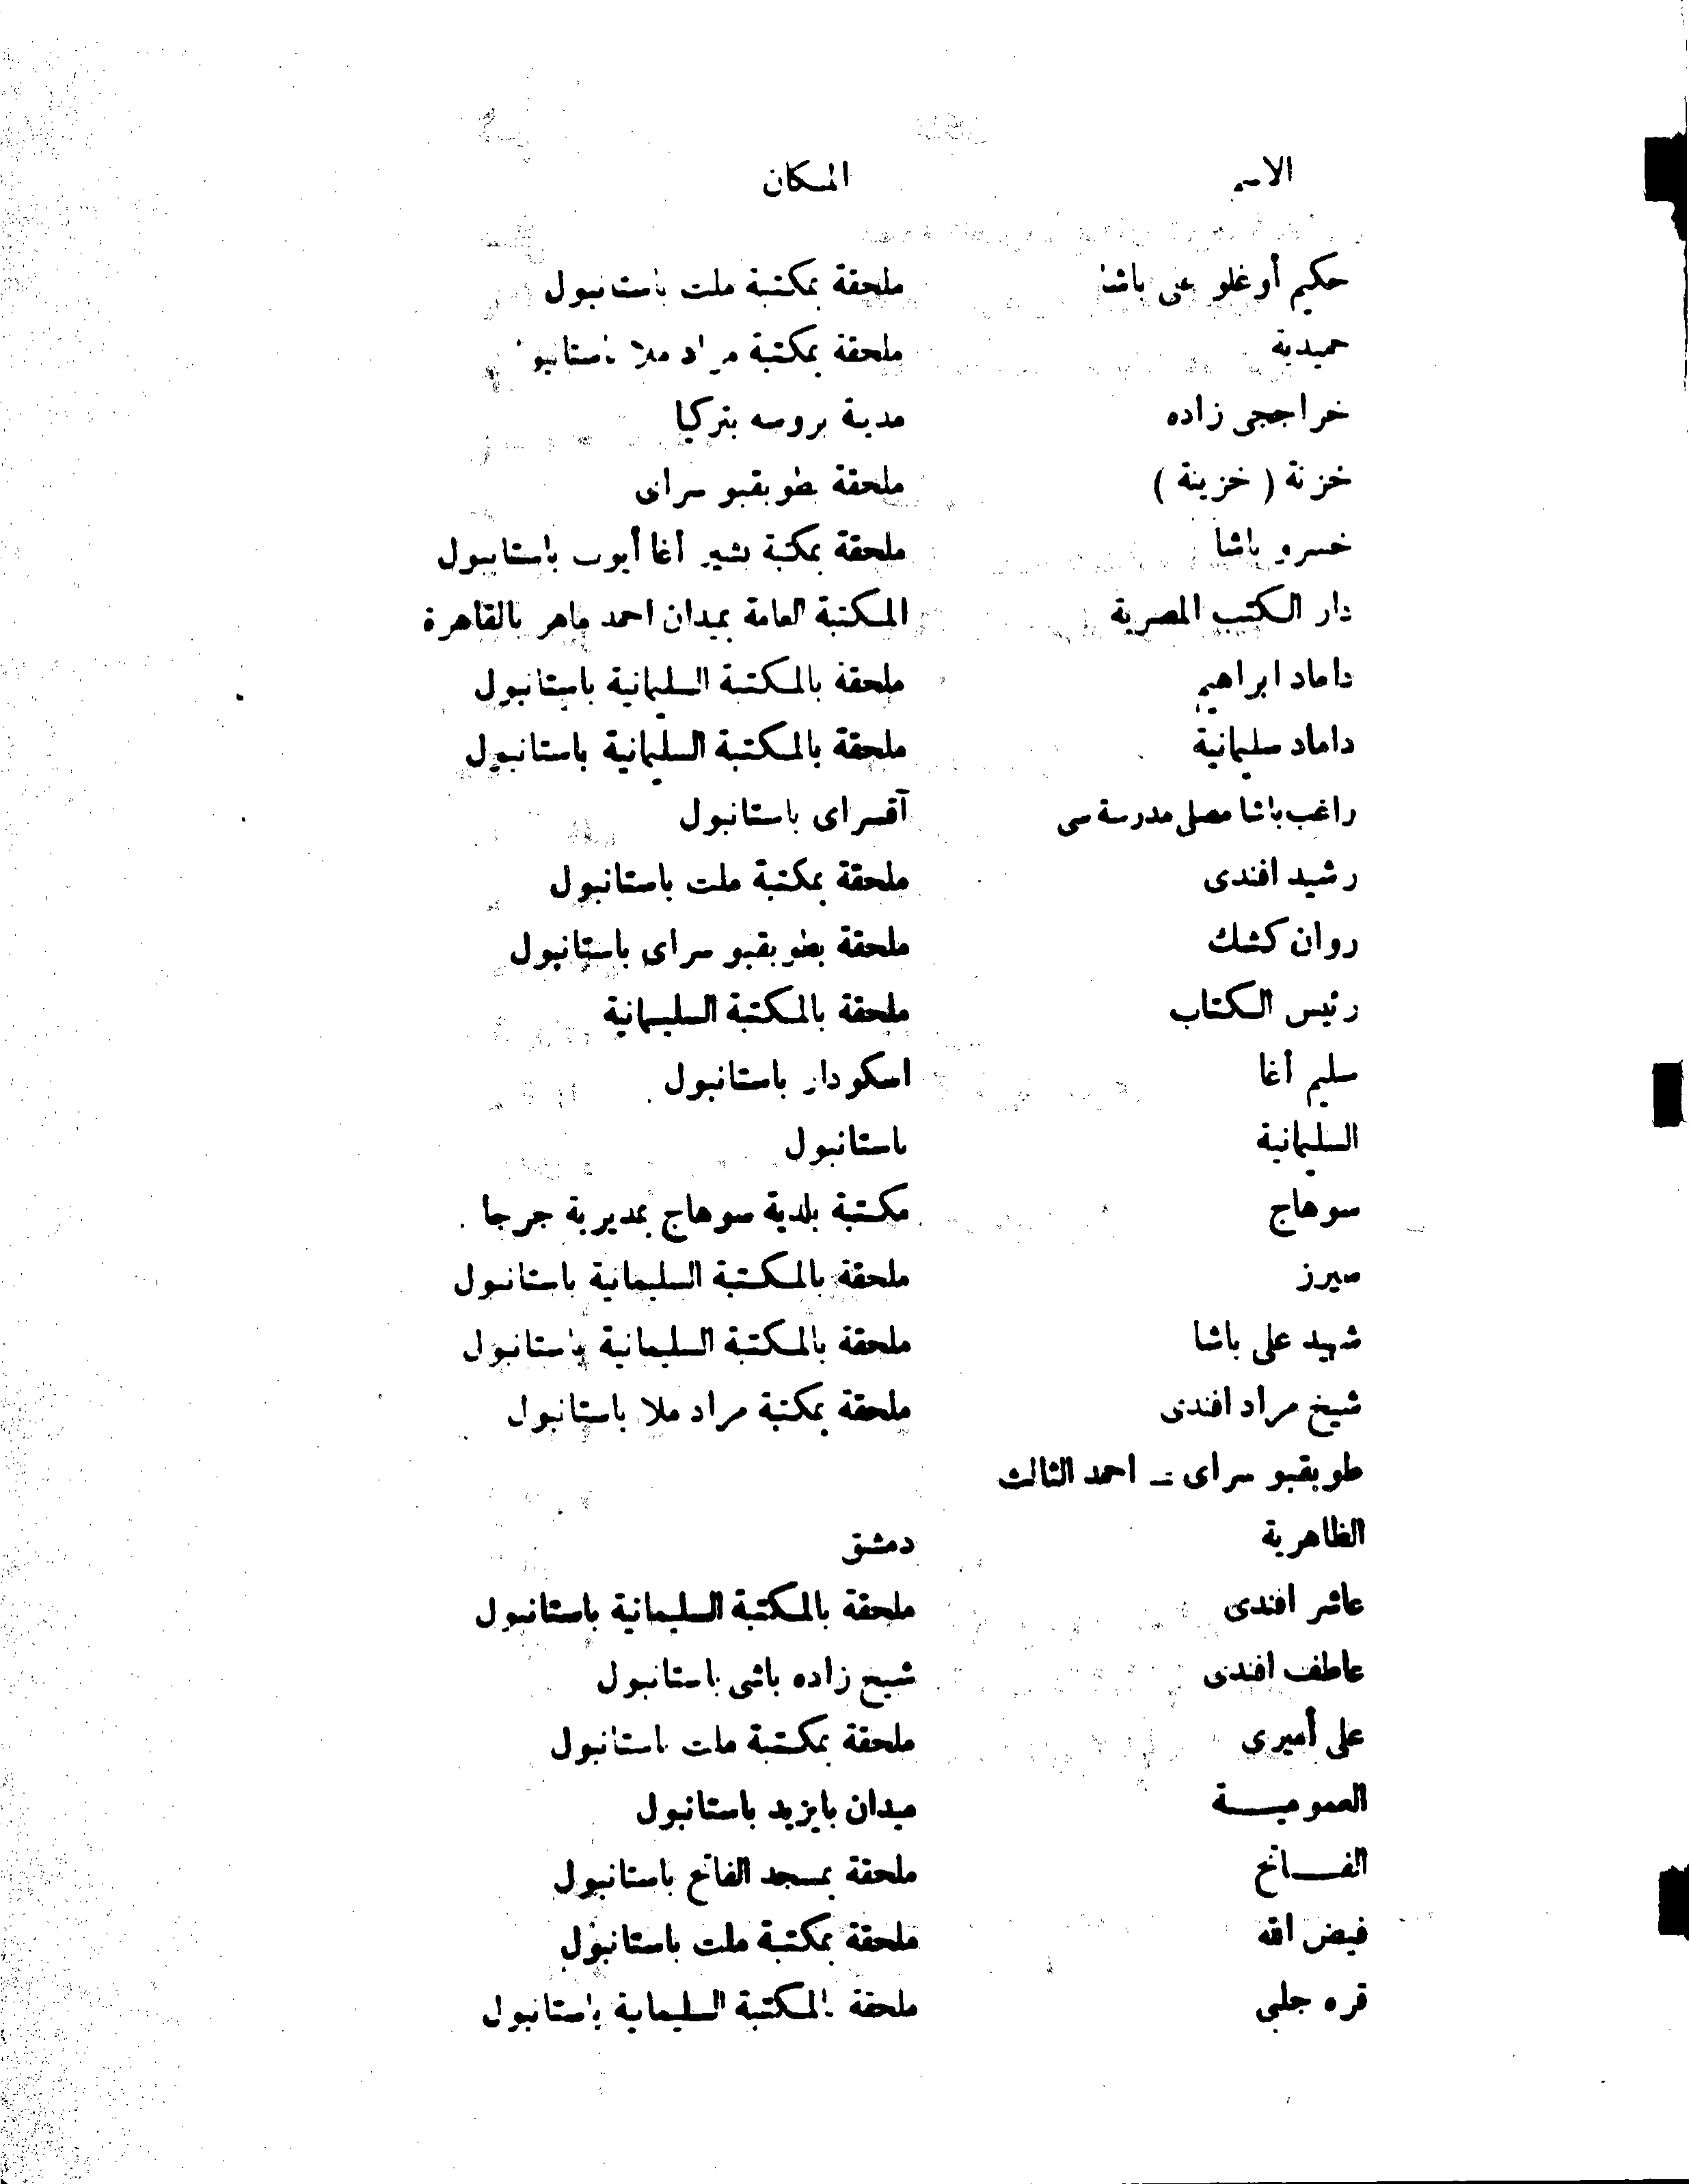 الاسم المكان
حكيم أوغلو على باشا ملحقة بمكتبة ملت باستانبول
حميدية ملحقة بمكتبة مراد ملا باستانبو
خراججى زاده مدينة بروسه بتركيا
خزنة ( خزينة ) ملحقة بطوبقبو سراى
خسرو باشا ملحقة بمكتبة بشير أغا أيوب باستانبول
دار الكتب المصرية المكتبة العامة بميدان احمد ماهر بالقاهرة
داماد ابراهيم ملحقة بالمكتبة السليمانية باستانبول
داماد سليمانية ملحقة بالمكتبة السليمانية باستانبول
راغب باشا مصلى مدرسة سى آقسراى باستانبول
رشيد افندى ملحقة بمكتبة ملت باستانبول
روان كشك ملحقة بطوبقبو سراى باستانبول
رئيس الكتاب ملحقة بالمكتبة السليمانية
سليم أغا اسكودار باستانبول
السليمانية باستانبول
سوهاج مكتبة بلدية سوهاج بمديرية جرجا .
سيرز ملحقة بالمكتبة السليمانية باستانبول
شهيد على باشا ملحقة بالمكتبة السليمانية باستانبول
شيخ مراد افندى ملحقة بمكتبة مراد ملا باستانبول
طوبقبو سراى – احمد الثالث
الظاهرية دمشق
عاشر افندى ملحقة بالمكتبة السليمانية باستانبول
عاطف افندى شيخ زاده باشى باستانبول
على أميرى ملحقة بمكتبة ملت باستانبول
العموميـــة ميدان بايزيد باستانبول
الفـــاتح ملحقة بمسجد الفاتح باستانبول
فيض الله ملحقة بمكتبة ملت باستانبول
قره جلبى ملحقة بالمكتبة السليمانية باستانبول